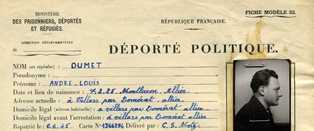 MINISTÈRE
DES PRISONNIERS, DÉPORTÉS
ET RÉFUGIÉS
RÉPUBLIQUE FRANÇAISE.
FICHE MODÈLE
DÉPORTÉ POLITIQUE.
NOM (en capitales) : DUMET
Pseudonyme :
Prénoms : ANDRE-LOUIS
Date et lieu de naissance : 7.2.25 Montluçon Allier
Adresse actuelle : à Villars par Domérat - Allier
Domicile légal à Villars par Domérat Allier
Domicile avant l'arrestation : à Villars par Domérat Allier
Rapatrié le Carte N° Délivré par : C.S. Metz